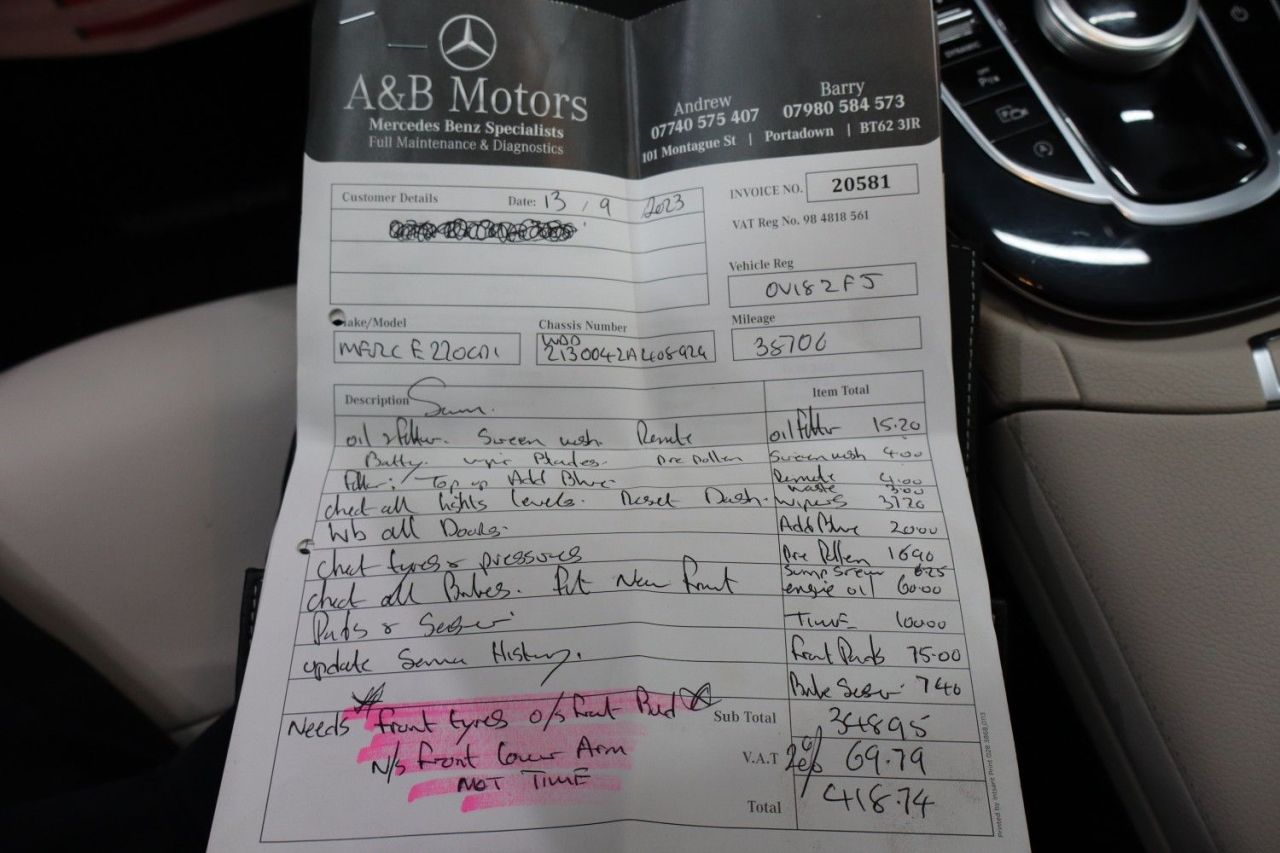 A&B Motors
Mercedes Benz Specialists
Full Maintenance & Diagnostics
Andrew
07740 575 407
Barry
07980 584 573
101 Montague St | Portadown | BT62 3JR
Customer Details Date: 13 / 9 2023
INVOICE NO. 20581
VAT Reg No. 98 4818 561
Vehicle Reg
OV18 2FJ
Make/Model
MERC E220CDI
Chassis Number
WDD
2130042A408924
Mileage
38706
Description Item Total
oil & filter. Screen wash. Remote oil filter 15.20
Screen wash 4.00
Filter; Top up Add Blue Remote 4.00
waste 3.00
check all lights levels. Reset Dash. wipers 31.20
Wb all Doors. Add Blue 20.00
check tyres & pressures Pollen 16.90
Sump Screw 6.25
check all Brakes. Fit New Front engine oil 60.00
Pads & Sensor TIME 100.00
update Service History. Front Pads 75.00
Brake Sensor 7.40
Needs Front tyres o/s front
N/s front lower Arm
NOT TIME
Sub Total 348.95
V.A.T 20% 69.79
Total 418.74